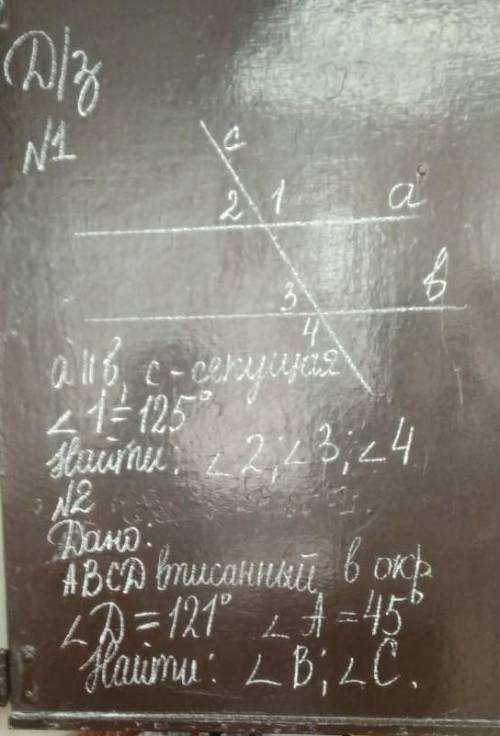 Д/з
№1
c
2 1 a
3 в
4
a || в, c - секущая
∠1=125°
Найти: ∠2; ∠3; ∠4
№2
Дано:
ABCD вписанный в окр
∠D=121° ∠A=45°
Найти: ∠B; ∠C.